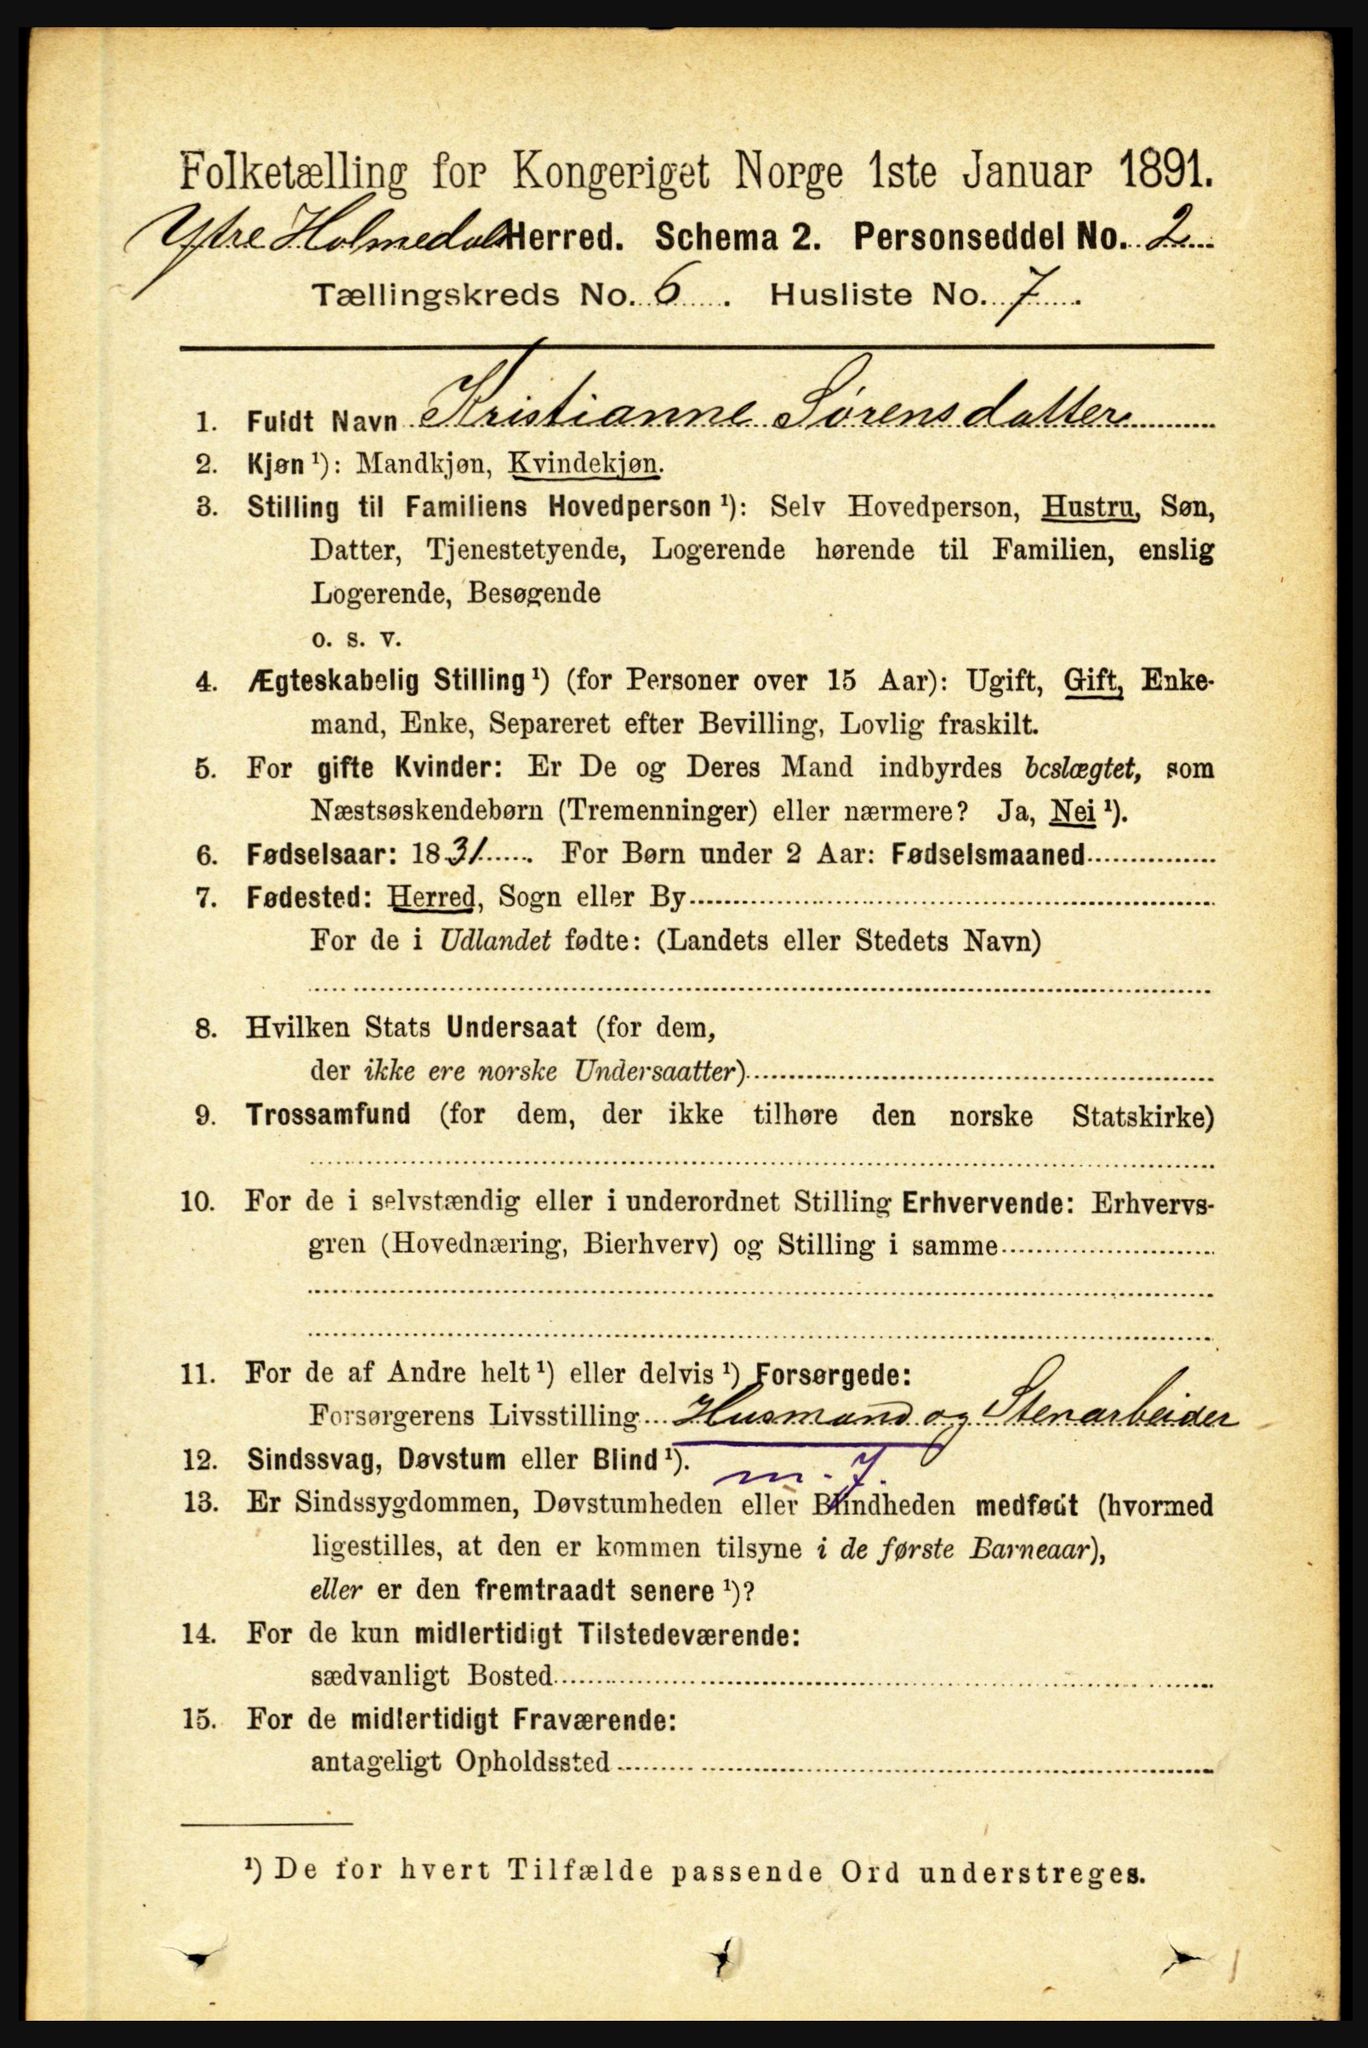 Folketælling for Kongeriget Norge 1ste Januar 1891.
Ytre Holmedals Herred. Schema 2. Personseddel No. 2
Tællingskreds No. 6. Husliste No. 7.
1. Fuldt Navn Kristianne Sørensdatter
2. Kjøn ¹): Mandkjøn, Kvindekjøn.
3. Stilling til Familiens Hovedperson ¹): Selv Hovedperson, Hustru, Søn,
Datter, Tjenestetyende, Logerende hørende til Familien, enslig
Logerende, Besøgende
o. s. v.
4. Ægteskabelig Stilling ¹) (for Personer over 15 Aar): Ugift, Gift, Enke-
mand, Enke, Separeret efter Bevilling, Lovlig fraskilt.
5. For gifte Kvinder: Er De og Deres Mand indbyrdes beslægtet, som
Næstsøskendebørn (Tremenninger) eller nærmere? Ja, Nei ¹).
6. Fødselsaar: 1831. For Børn under 2 Aar: Fødselsmaaned
7. Fødested: Herred, Sogn eller By
For de i Udlandet fødte: (Landets eller Stedets Navn)
8. Hvilken Stats Undersaat (for dem,
der ikke ere norske Undersaatter)
9. Trossamfund (for dem, der ikke tilhøre den norske Statskirke)
10. For de i selvstændig eller i underordnet Stilling Erhvervende: Erhvervs-
gren (Hovednæring, Bierhverv) og Stilling i samme
11. For de af Andre helt ¹) eller delvis ¹) Forsørgede:
Forsørgerens Livsstilling Husmand og Stenarbeider
12. Sindssvag, Døvstum eller Blind ¹).
m. J.
13. Er Sindssygdommen, Døvstumheden eller Blindheden medfødt (hvormed
ligestilles, at den er kommen tilsyne i de første Barneaar),
eller er den fremtraadt senere ¹)?
14. For de kun midlertidigt Tilstedeværende:
sædvanligt Bosted
15. For de midlertidigt Fraværende:
antageligt Opholdssted
¹) De for hvert Tilfælde passende Ord understreges.